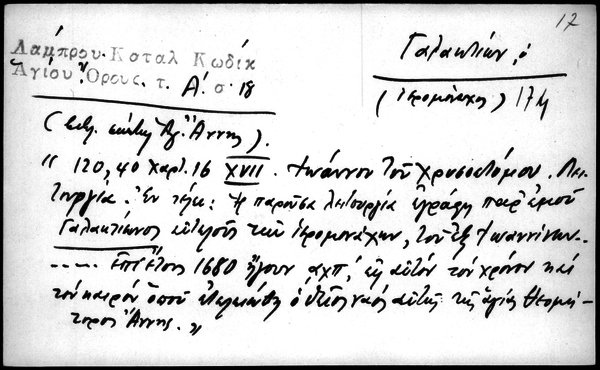 17
Λάμπρου. Καταλ Κωδίκ
Ἁγίου Ὄρους. τ. Α΄. σ. 18
Γαλακτίων, ὁ
(ἱερομόναχος) 174
Ἁγ. Ἄννης).
" 120,40 Χαρτ. 16 XVII. Ἰωάννου τοῦ Χρυσοστόμου. Λει-
τουργία. Ἐν τέλει: ἡ παροῦσα λειτουργία ἐγράφη παρ' ἐμοῦ
Γαλακτίωνος τοῦ ἱερομονάχου, τοῦ ἐξ Ἰωαννίνων..
..... ἔτος 1680 ἤγουν αχπ΄, εἰς αὐτὸν τὸν χρόνον καὶ
τὸν καιρὸν ὁποῦ ὁ θεῖος ναὸς αὐτῆς τῆς ἁγίας Θεομή-
τορος Ἄννης. "